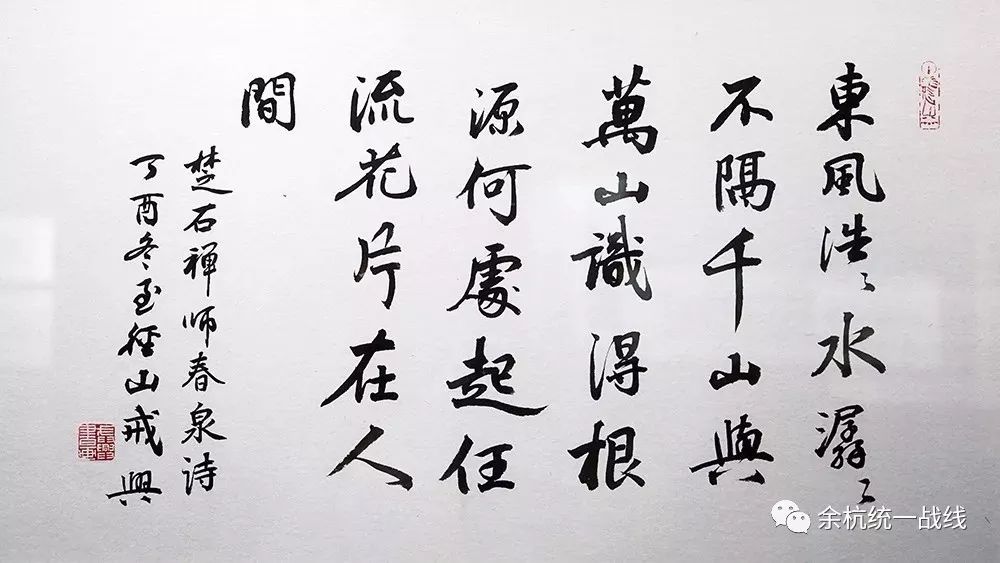 東風浩〻水潺〻
不隔千山與
萬山識得根
源何處起任
流花片在人
間
楚石禅师春泉诗
丁酉冬至径山戒興
余杭统一战线